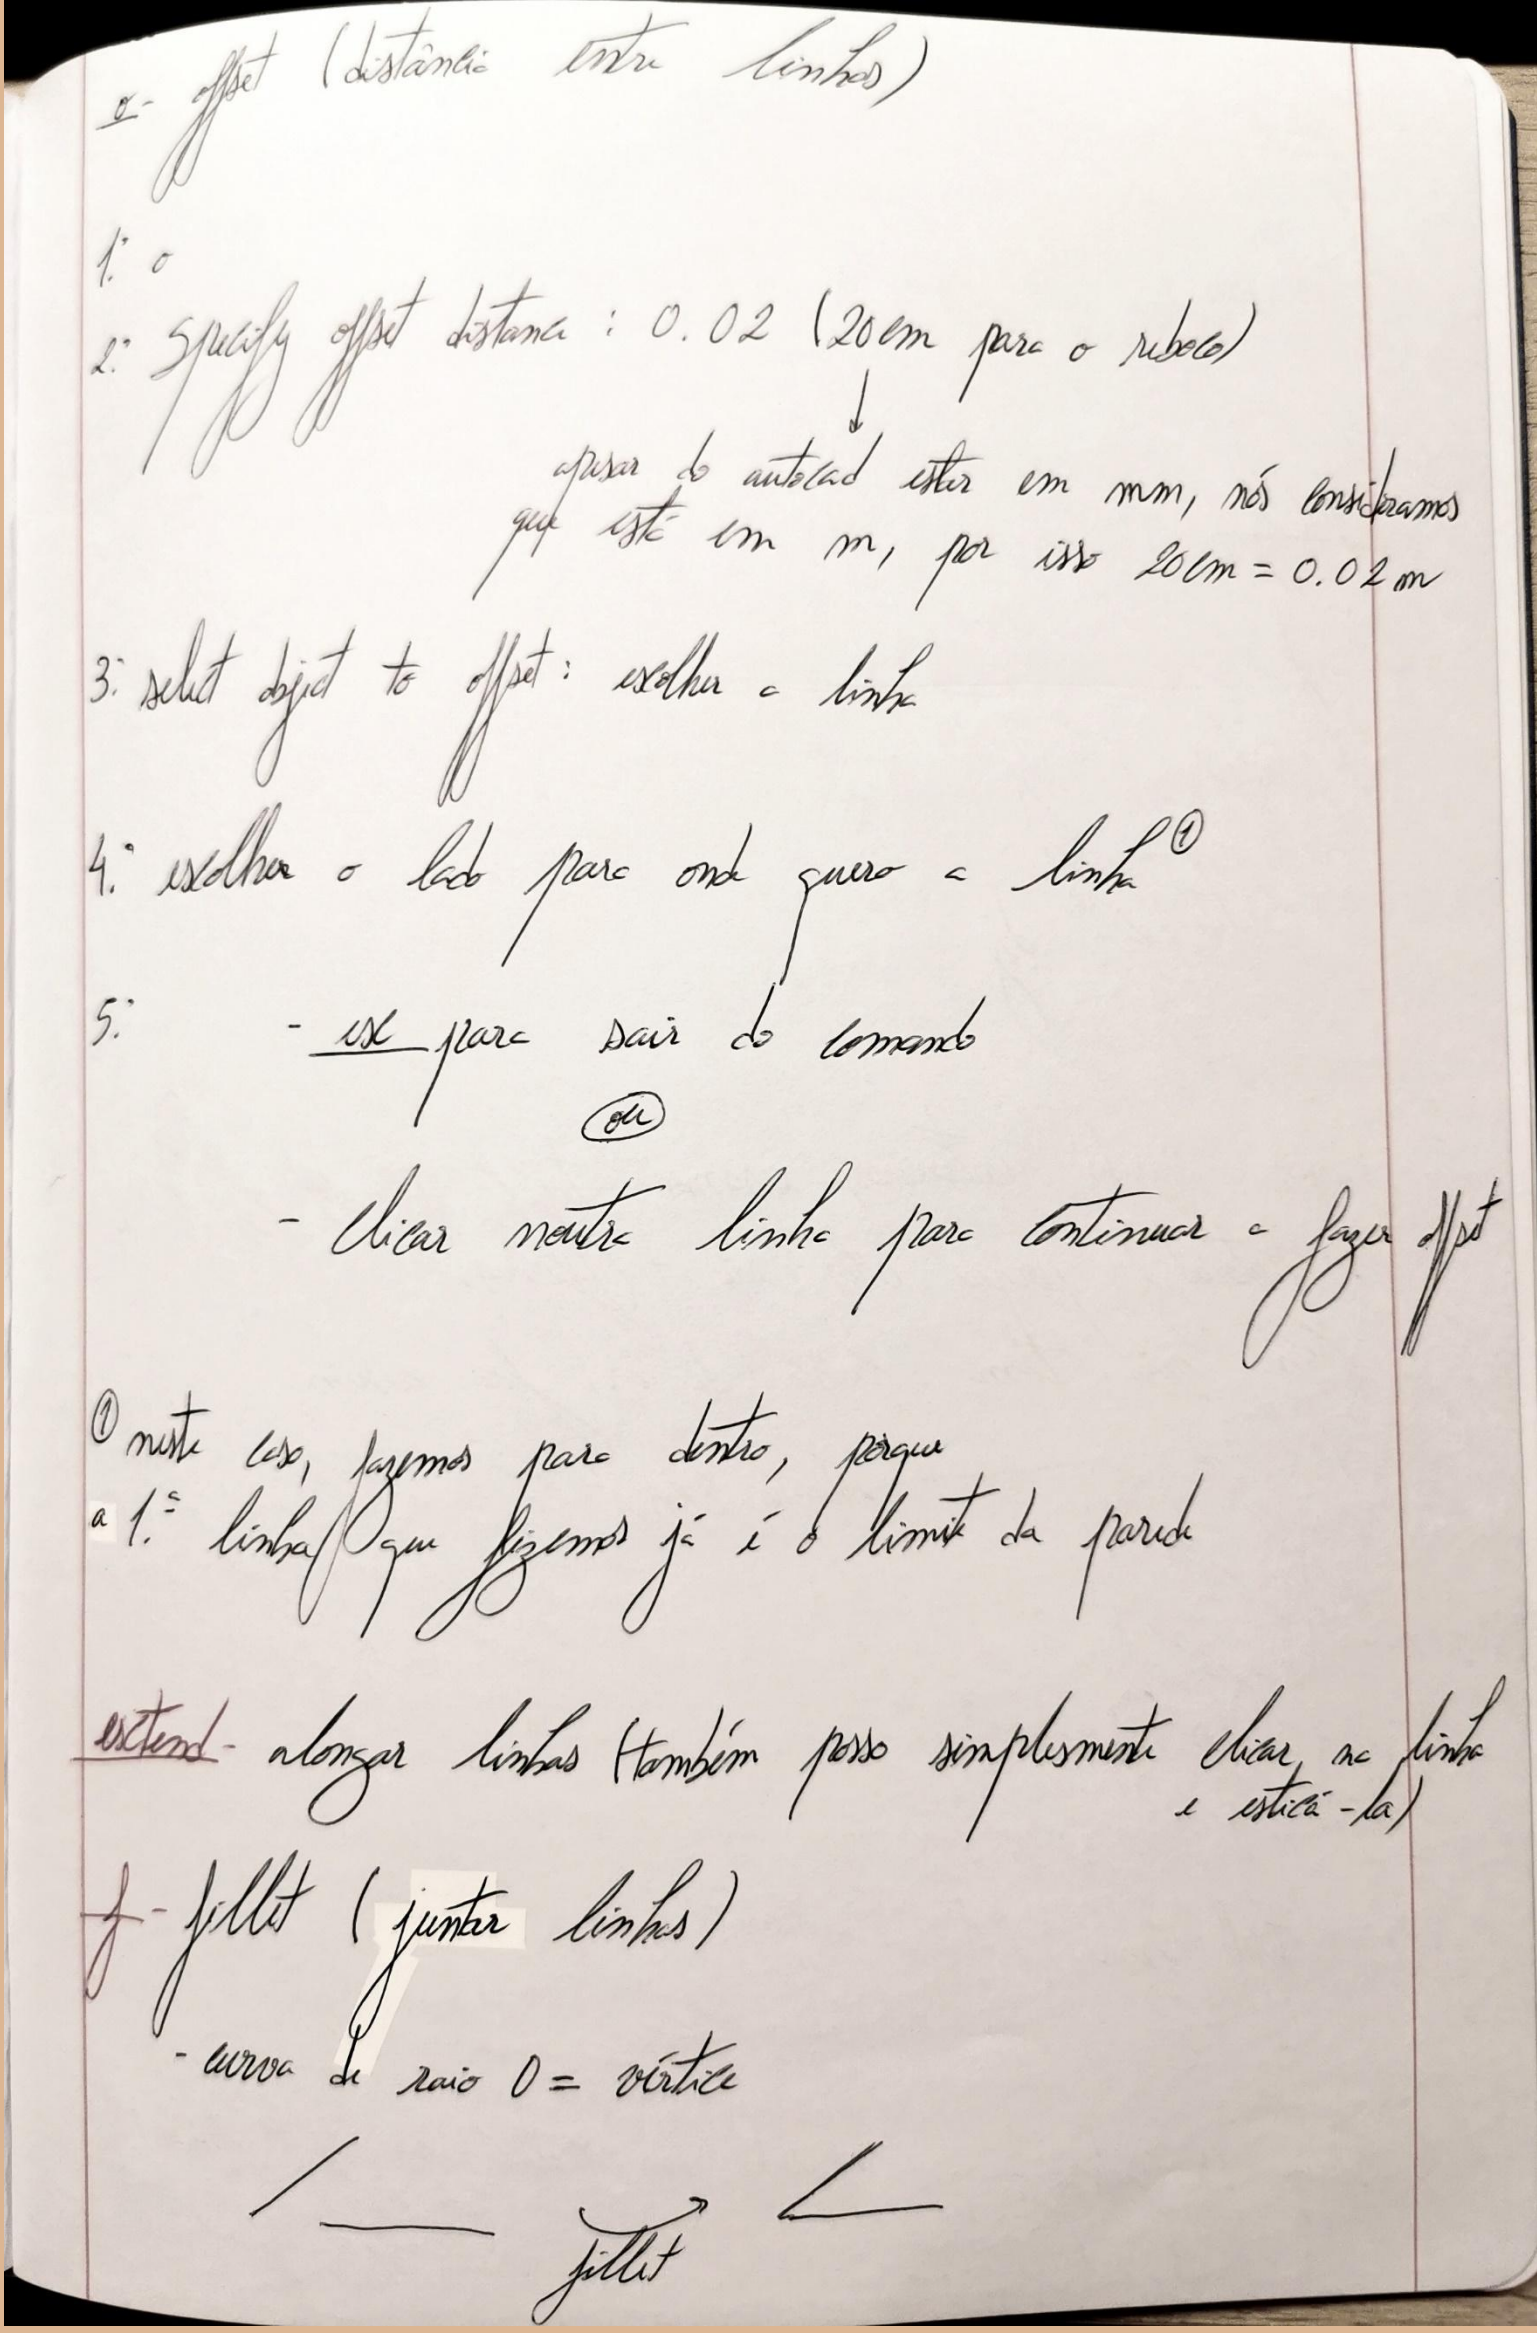 o - offset (distância entre linhas)
1.º o
2.º Specify offset distance : 0.02 (20cm para o reboco)
↓
apesar do autocad estar em mm, nós consideramos
que está em m, por isso 20cm = 0.02m
3.º select object to offset: escolher a linha
4.º escolher o lado para onde quero a linha ①
5.º - esc para sair do comando
ou
- clicar noutra linha para continuar a fazer offset
① neste caso, fazemos para dentro, porque
a 1.ª linha que fizemos já é o limite da parede
extend - alongar linhas (também posso simplesmente clicar na linha
e esticá-la)
f - fillet (juntar linhas)
- curva de raio 0 = vértice
fillet